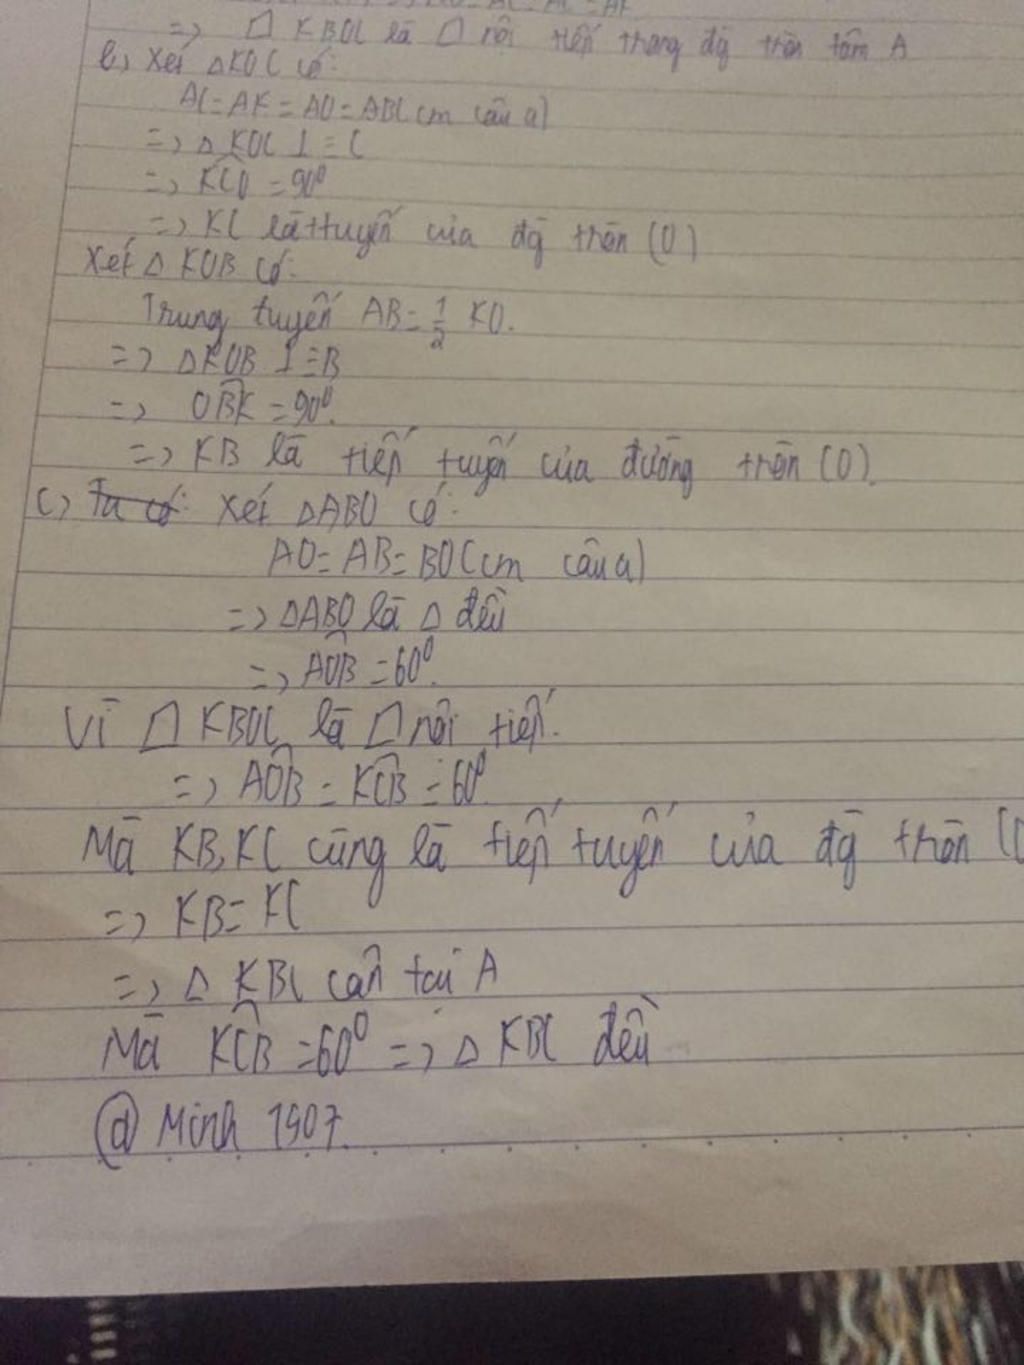 => □ KBOC là □ nội tiếp trong đg tròn tâm A
b, Xét ΔKOC có:
AC = AK = AO = AB (cm câu a)
=> Δ KOC ⊥ ≡ C
=> KĈO = 90⁰
=> KC là ttuyến của đg tròn (O)
Xét Δ KOB có:
Trung tuyến AB = 1/2 KO.
=> ΔKOB ⊥ ≡ B
=> OB̂K = 90⁰.
=> KB là tiếp tuyến của đường tròn (O).
c) Ta có: Xét ΔABO có:
AO = AB = BO (cm câu a)
=> ΔABO là Δ đều
=> AÔB = 60⁰.
Vì □ KBOC là □ nội tiếp.
=> AÔB = KĈB = 60⁰
Mà KB, KC cũng là tiếp tuyến của đg tròn (O
=> KB = KC
=> Δ KBC cân tại A
Mà KĈB = 60⁰ => Δ KBC đều
@ Minh 1907.